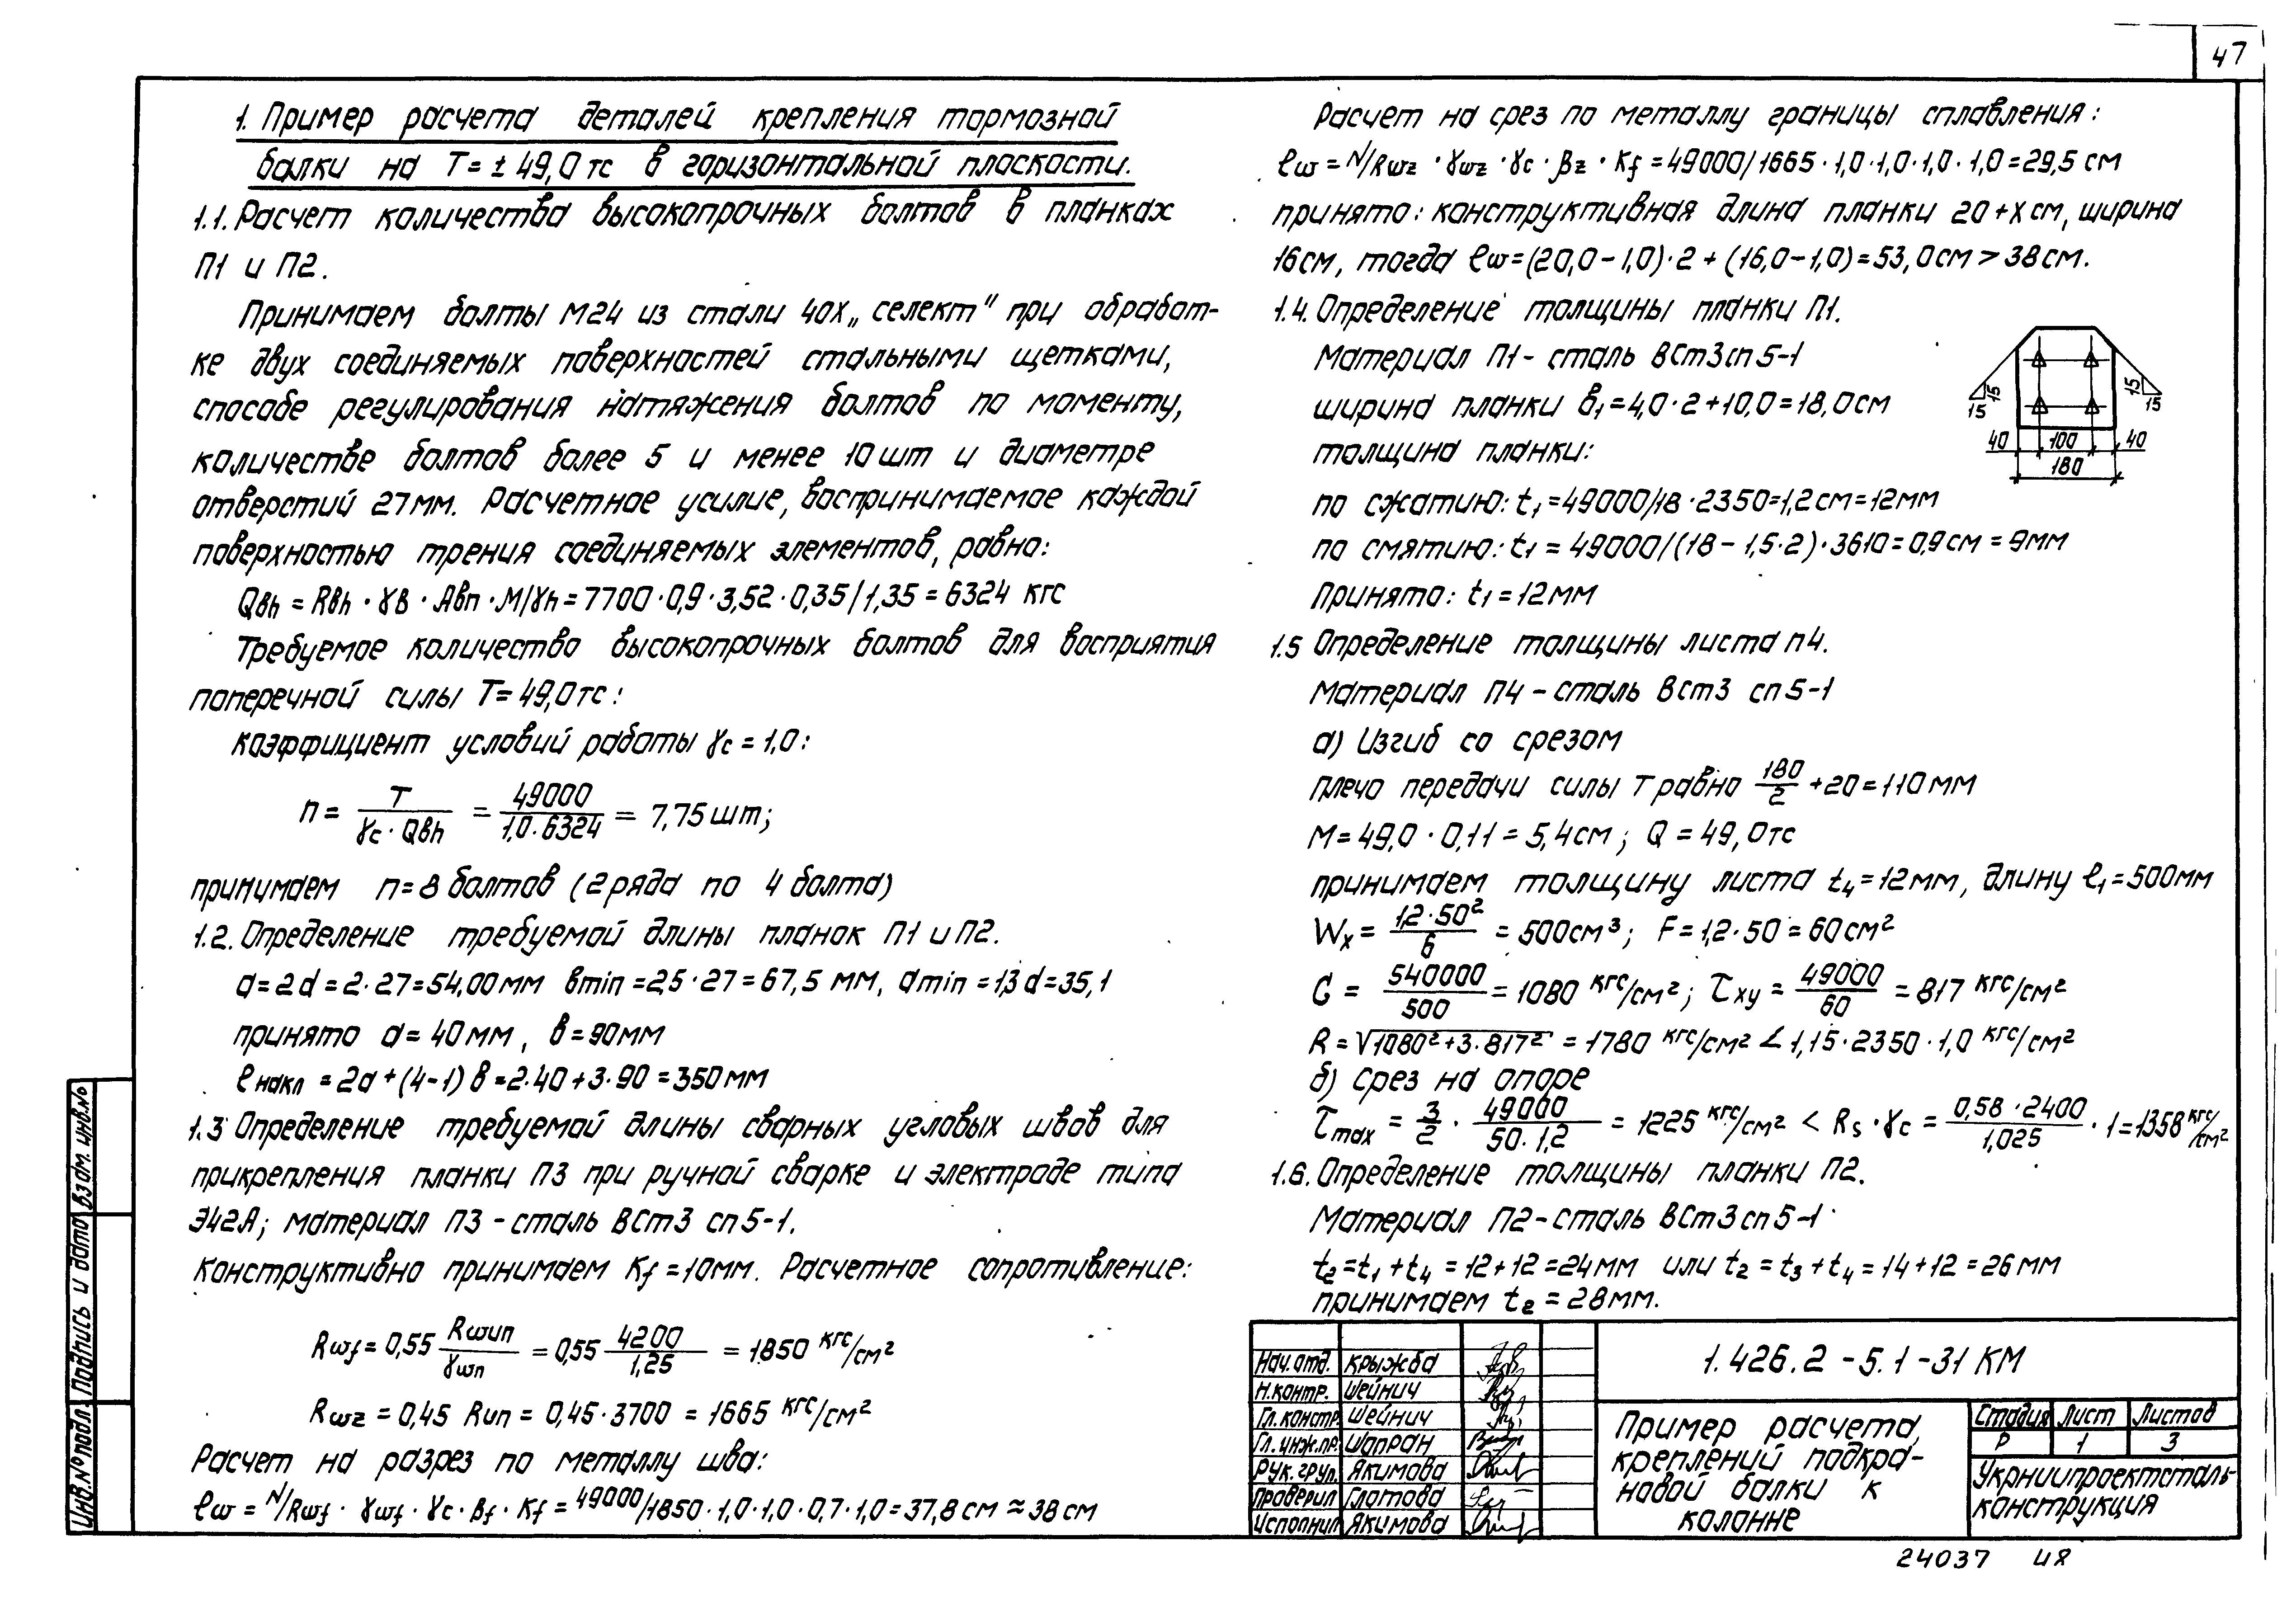 47
1. Пример расчета деталей крепления тормозной
балки на Т= ± 49,0 тс в горизонтальной плоскости.
1.1. Расчет количества высокопрочных болтов в планках
П1 и П2.
Принимаем болты М24 из стали 40Х „селект" при обработ-
ке двух соединяемых поверхностей стальными щетками,
способе регулирования натяжения болтов по моменту,
количестве болтов более 5 и менее 10 шт и диаметре
отверстий 27мм. Расчетное усилие, воспринимаемое каждой
поверхностью трения соединяемых элементов, равно:
Qвh = Rвh · γв · Aвп · М/γh = 7700 · 0,9 · 3,52 · 0,35/1,35 = 6324 кгс
Требуемое количество высокопрочных болтов для восприятия
поперечной силы Т= 49,0тс:
коэффициент условий работы γc = 1,0:
n = T / γc · Qвh = 49000 / 1,0 · 6324 = 7,75 шт;
принимаем n = 8 болтов (2 ряда по 4 болта)
1.2. Определение требуемой длины планок П1 и П2.
а=2d=2·27=54,00мм вmin=2,5·27=67,5 мм, аmin=1,3d=35,1
принято а= 40 мм, в=90мм
ℓнакл = 2а + (4-1) в = 2·40+3·90 = 350 мм
1.3 Определение требуемой длины сварных угловых швов для
прикрепления планки П3 при ручной сварке и электроде типа
Э42А; материал П3 - сталь ВСт3 сп5-1.
Конструктивно принимаем Kf = 10мм. Расчетное сопротивление:
Rωf = 0,55 Rωun / γωn = 0,55 4200 / 1,25 = 1850 кгс/см²
Rωz = 0,45 Run = 0,45·3700 = 1665 кгс/см²
Расчет на разрез по металлу шва:
ℓω = N/Rωf · γωf · γc · βf · Kf = 49000/1850 · 1,0 · 1,0 · 0,7 · 1,0 = 37,8 см ≈ 38 см
Расчет на срез по металлу границы сплавления:
ℓω = N/Rωz · γωz · γc · βz · Kf = 49000/1665 · 1,0 · 1,0 · 1,0 · 1,0 = 29,5 см
принято: конструктивная длина планки 20+х см, ширина
16см, тогда ℓω=(20,0-1,0)·2+(16,0-1,0)=53,0см > 38 см.
1.4. Определение толщины планки П1.
Материал П1- сталь ВСт3сп5-1
ширина планки в1=4,0·2+10,0=18,0см
толщина планки:
по сжатию: t1=49000/18·2350=1,2см=12мм
по смятию: t1 = 49000/(18-1,5·2)·3610=0,9см = 9мм
Принято: t1=12мм
15 15 15 15
40 100 40
180
1.5 Определение толщины листа п4.
Материал П4 - сталь ВСт3 сп5-1
а) Изгиб со срезом
плечо передачи силы Т равно 180 / 2 + 20 = 110 мм
М=49,0 · 0,11 = 5,4см; Q = 49,0тс
принимаем толщину листа t4=12мм, длину ℓ1=500мм
Wx = 12·50² / 6 = 500см³; F = 1,2·50 = 60 см²
G = 540000 / 500 = 1080 кгс/см²; τxy = 49000 / 60 = 817 кгс/см²
R = √1080²+3·817² = 1780 кгс/см² < 1,15·2350·1,0 кгс/см²
б) Срез на опоре
τmax = 3/2 · 49000 / 50·1,2 = 1225 кгс/см² < Rs · γc = 0,58·2400 / 1,025 · 1=1358 кгс/см²
1.6. Определение толщины планки П2.
Материал П2-сталь ВСт3сп5-1
t2=t1+t4=12+12=24мм или t2=t3+t4=14+12=26мм
принимаем t2 = 28мм.
Нач.отд. Крыжба
Н.контр. Шейнич
Гл.констр. Шейнич
Гл.инж.пр. Шапран
Рук.груп. Якимова
Проверил Глотова
Исполнил Якимова
1.426.2 - 5.1 - 31 КМ
Пример расчета,
креплений подкра-
новой балки к
колонне
Стадия Лист Листов
Р 1 3
Укрниипроектсталь-
конструкция
Инв.№подл. Подпись и дата Взам. инв.№
24037 48